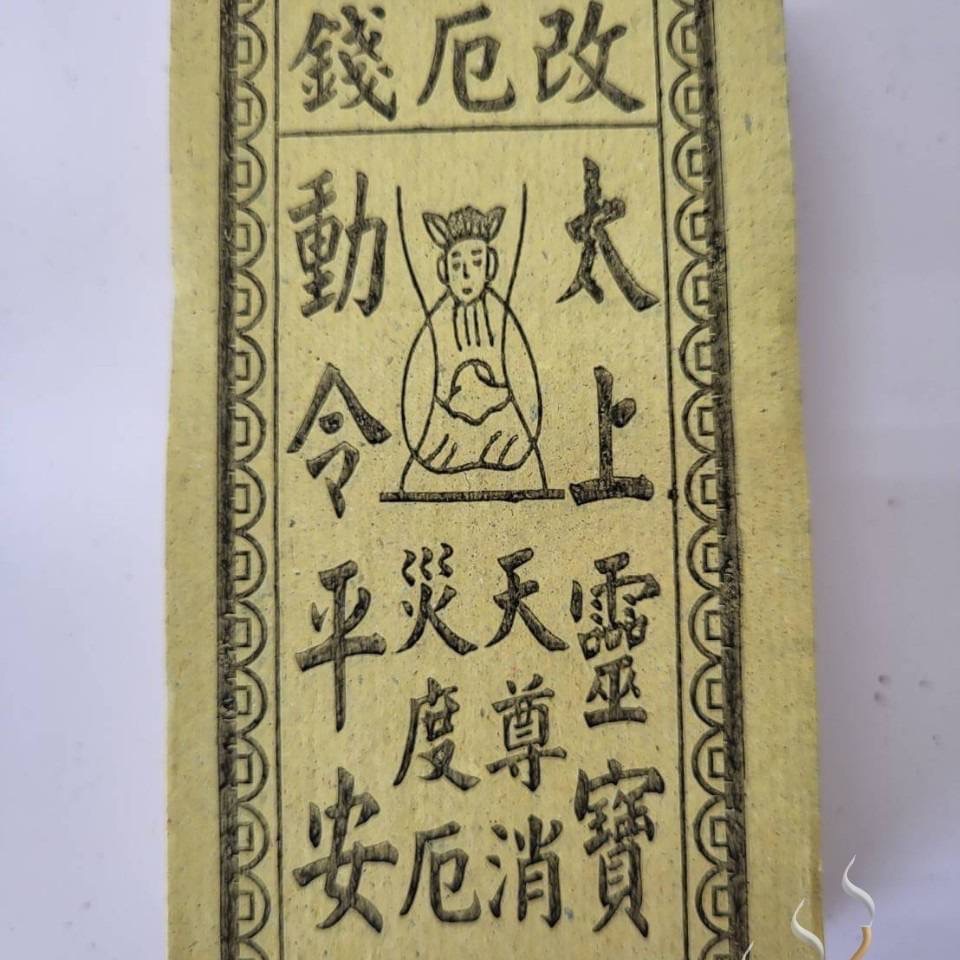 改厄錢
太上靈寶
天尊消
災度厄
動令平安